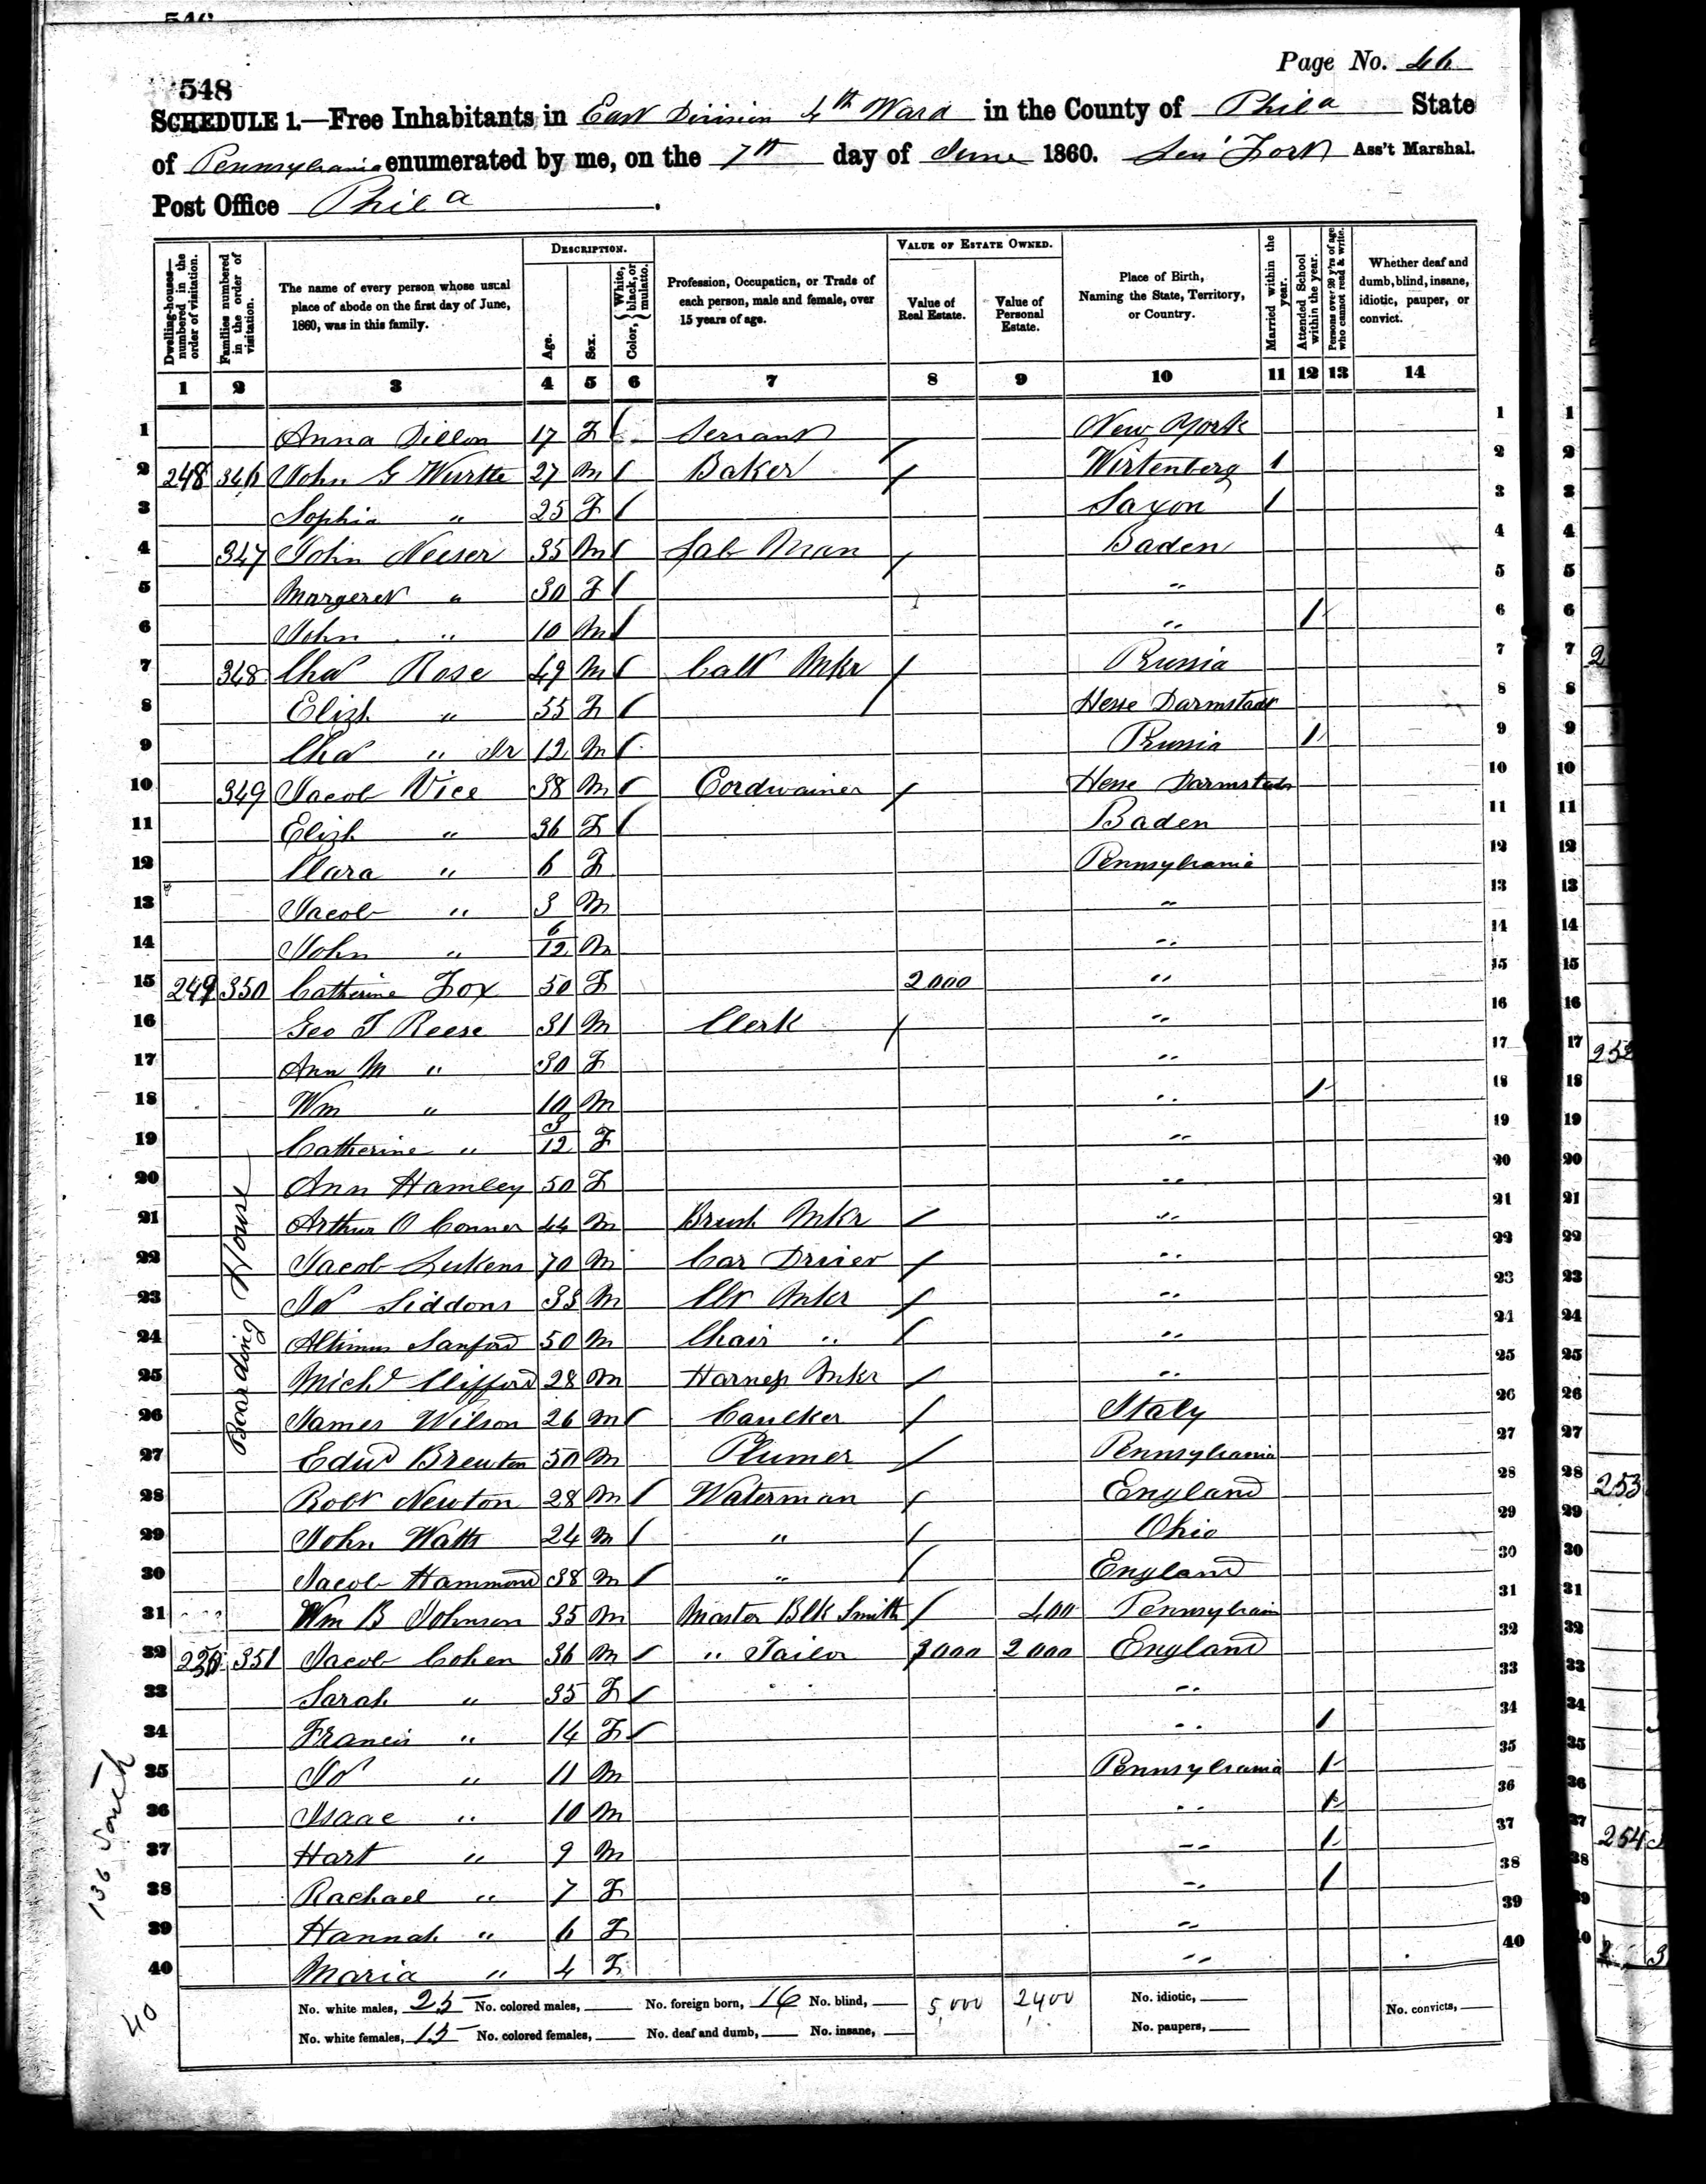 Page No. 46
548
SCHEDULE 1.—Free Inhabitants in East Division 4th Ward in the County of Phila State
of Pennsylvania enumerated by me, on the 7th day of June 1860. Ass't Marshal.
Post Office Phila.
Dwelling-houses—numbered in the order of visitation.
Families numbered in the order of visitation.
The name of every person whose usual place of abode on the first day of June, 1860, was in this family.
DESCRIPTION.
Age.
Sex.
Color, {White, black, or mulatto.
Profession, Occupation, or Trade of each person, male and female, over 15 years of age.
VALUE OF ESTATE OWNED.
Value of Real Estate.
Value of Personal Estate.
Place of Birth, Naming the State, Territory, or Country.
Married within the year.
Attended School within the year.
Persons over 20 y'rs of age who cannot read & write.
Whether deaf and dumb, blind, insane, idiotic, pauper, or convict.
1 2 3 4 5 6 7 8 9 10 11 12 13 14
1 Anna Dillon 17 F / Servant New York 1
2 248 346 John G Wurtte 27 M / Baker / Wirtenberg 1 2
3 Sophia " 25 F / Saxon 1 3
4 347 John Neeser 35 M / Lab Man / Baden 4
5 Margeret " 30 F / " 5
6 John " 10 M / " / 6
7 348 Chas Rose 49 M / Cabt Mkr / Prussia 7
8 Elizh " 55 F / / Hesse Darmstadt 8
9 Chas " Jr 12 M / Prussia / 9
10 349 Jacob Vice 38 M / Cordwainer / Hesse Darmstadt 10
11 Elizh " 36 F / Baden 11
12 Clara " 6 F Pennsylvania 12
13 Jacob " 3 M " 13
14 John " 6/12 M " 14
15 249 350 Catherine Fox 50 F 2000 " 15
16 Geo T Reese 31 M Clerk / " 16
17 Ann M " 30 F " 17
18 Wm " 10 M " / 18
19 Catherine " 3/12 F " 19
20 Ann Hamley 50 F " 20
21 Arthur O Conner 44 M Brush Mkr / " 21
22 Jacob Lukens 70 M Car Driver / " 22
23 Js Siddons 33 M Mkr / " 23
24 Altimus Sanford 50 M Chair " / " 24
25 Michl Clifford 28 M Harness Mkr / " 25
26 James Wilson 26 M / Caulker / Italy 26
27 Edwd Brewton 50 M Plumer / Pennsylvania 27
28 Robt Newton 28 M / Waterman / England 28
29 John Watts 24 M / " / Ohio 29
30 Jacob Hammond 38 M / " / England 30
31 Wm B Johnson 35 M Master Blk Smith / 400 Pennsylvain 31
32 250 351 Jacob Cohen 36 M / " Tailor 3000 2000 England 32
33 Sarah " 35 F / " 33
34 Francis " 14 F / " / 34
35 Js " 11 M Pennsylvania / 35
36 Isaac " 10 M " / 36
37 Hart " 9 M " / 37
38 Rachael " 7 F " / 38
39 Hannah " 6 F " 39
40 Maria " 4 F " 40
Boarding House
136 South
40
No. white males, 25 No. colored males, No. foreign born, 16 No. blind, 5,000 2400 No. idiotic, No. convicts,
No. white females, 15 No. colored females, No. deaf and dumb, No. insane, No. paupers,
252
253
254